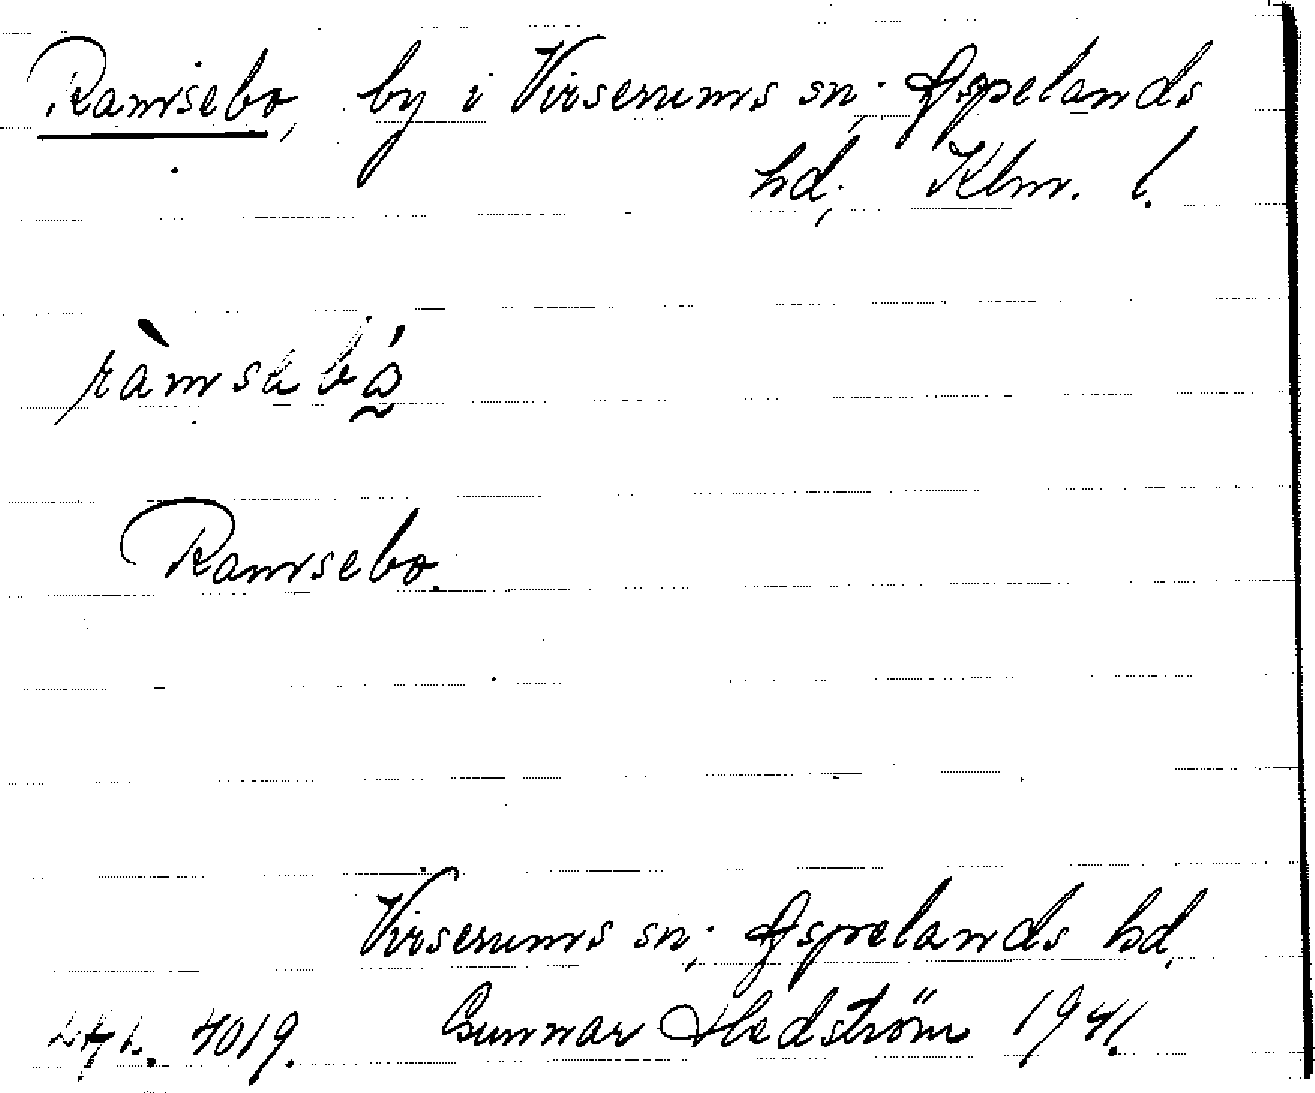 Ramsebo, by i Virserums sn; Aspelands
hd; Klm. l.
ràmsebó̰
Ramsebo.
Virserums sn; Aspelands hd,
4019. Gunnar Hedström 1941.